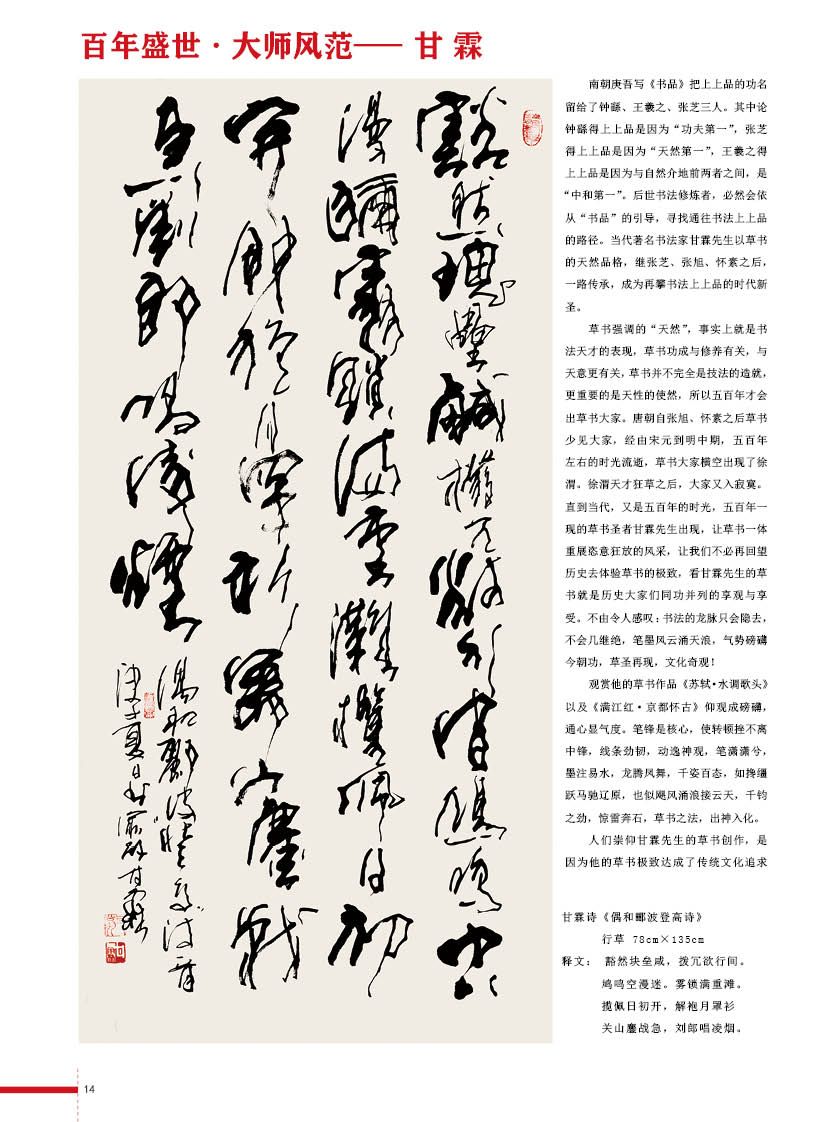 百年盛世·大师风范—— 甘 霖
南朝庚吾写《书品》把上上品的功名
留给了钟繇、王羲之、张芝三人。其中论
钟繇得上上品是因为“功夫第一”，张芝
得上上品是因为“天然第一”，王羲之得
上上品是因为与自然介地前两者之间，是
“中和第一”。后世书法修炼者，必然会依
从“书品”的引导，寻找通往书法上上品
的路径。当代著名书法家甘霖先生以草书
的天然品格，继张芝、张旭、怀素之后，
一路传承，成为再攀书法上上品的时代新
圣。
草书强调的“天然”，事实上就是书
法天才的表现，草书功成与修养有关，与
天意更有关，草书并不完全是技法的造就，
更重要的是天性的使然，所以五百年才会
出草书大家。唐朝自张旭、怀素之后草书
少见大家，经由宋元到明中期，五百年
左右的时光流逝，草书大家横空出现了徐
渭。徐渭天才狂草之后，大家又入寂寞。
直到当代，又是五百年的时光，五百年一
现的草书圣者甘霖先生出现，让草书一体
重展恣意狂放的风采，让我们不必再回望
历史去体验草书的极致，看甘霖先生的草
书就是历史大家们同功并列的享观与享
受。不由令人感叹：书法的龙脉只会隐去，
不会几继绝，笔墨风云涌天浪，气势磅礴
今朝功，草圣再现，文化奇观！
观赏他的草书作品《苏轼·水调歌头》
以及《满江红·京都怀古》仰观成磅礴，
通心显气度。笔锋是核心，使转顿挫不离
中锋，线条劲韧，动逸神观，笔潇潇兮，
墨注易水，龙腾凤舞，千姿百态，如搀缰
跃马驰辽原，也似飓风涌浪接云天，千钧
之劲，惊雷奔石，草书之法，出神入化。
人们崇仰甘霖先生的草书创作，是
因为他的草书极致达成了传统文化追求
甘霖诗《偶和郦波登高诗》
行草 78cm×135cm
释文： 豁然块垒咸，拨冗欲行间。
鸠鸣空漫迷。雾锁满重滩。
揽佩日初开，解袍月罩衫
关山鏖战急，刘郎唱凌烟。
14